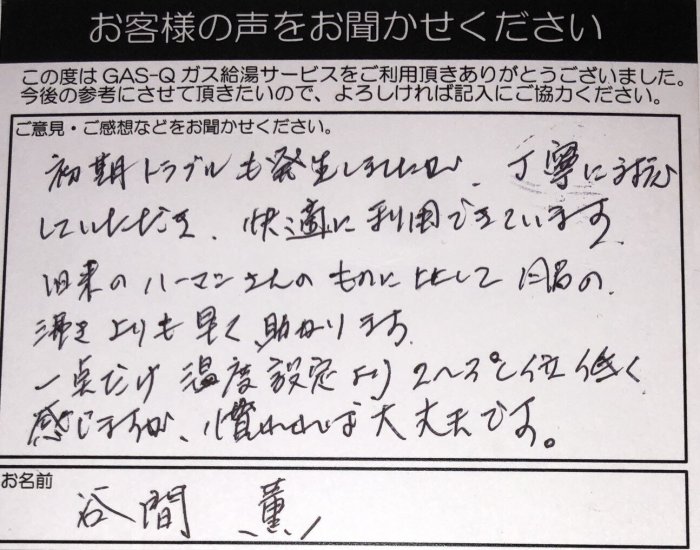 お客様の声をお聞かせください
この度はGAS-Qガス給湯サービスをご利用頂きありがとうございました。
今後の参考にさせて頂きたいので、よろしければ記入にご協力ください。
ご意見・ご感想などをお聞かせください。
初期トラブルも発生しましたが、丁寧に対応
していただき、快適に利用できています。
旧来のハーマンさんのものに比して の
沸き上りも早く助かります。
一点だけ温度設定より2〜3℃位低く
感じますが、慣れれば大丈夫です。
お名前
谷間 薫